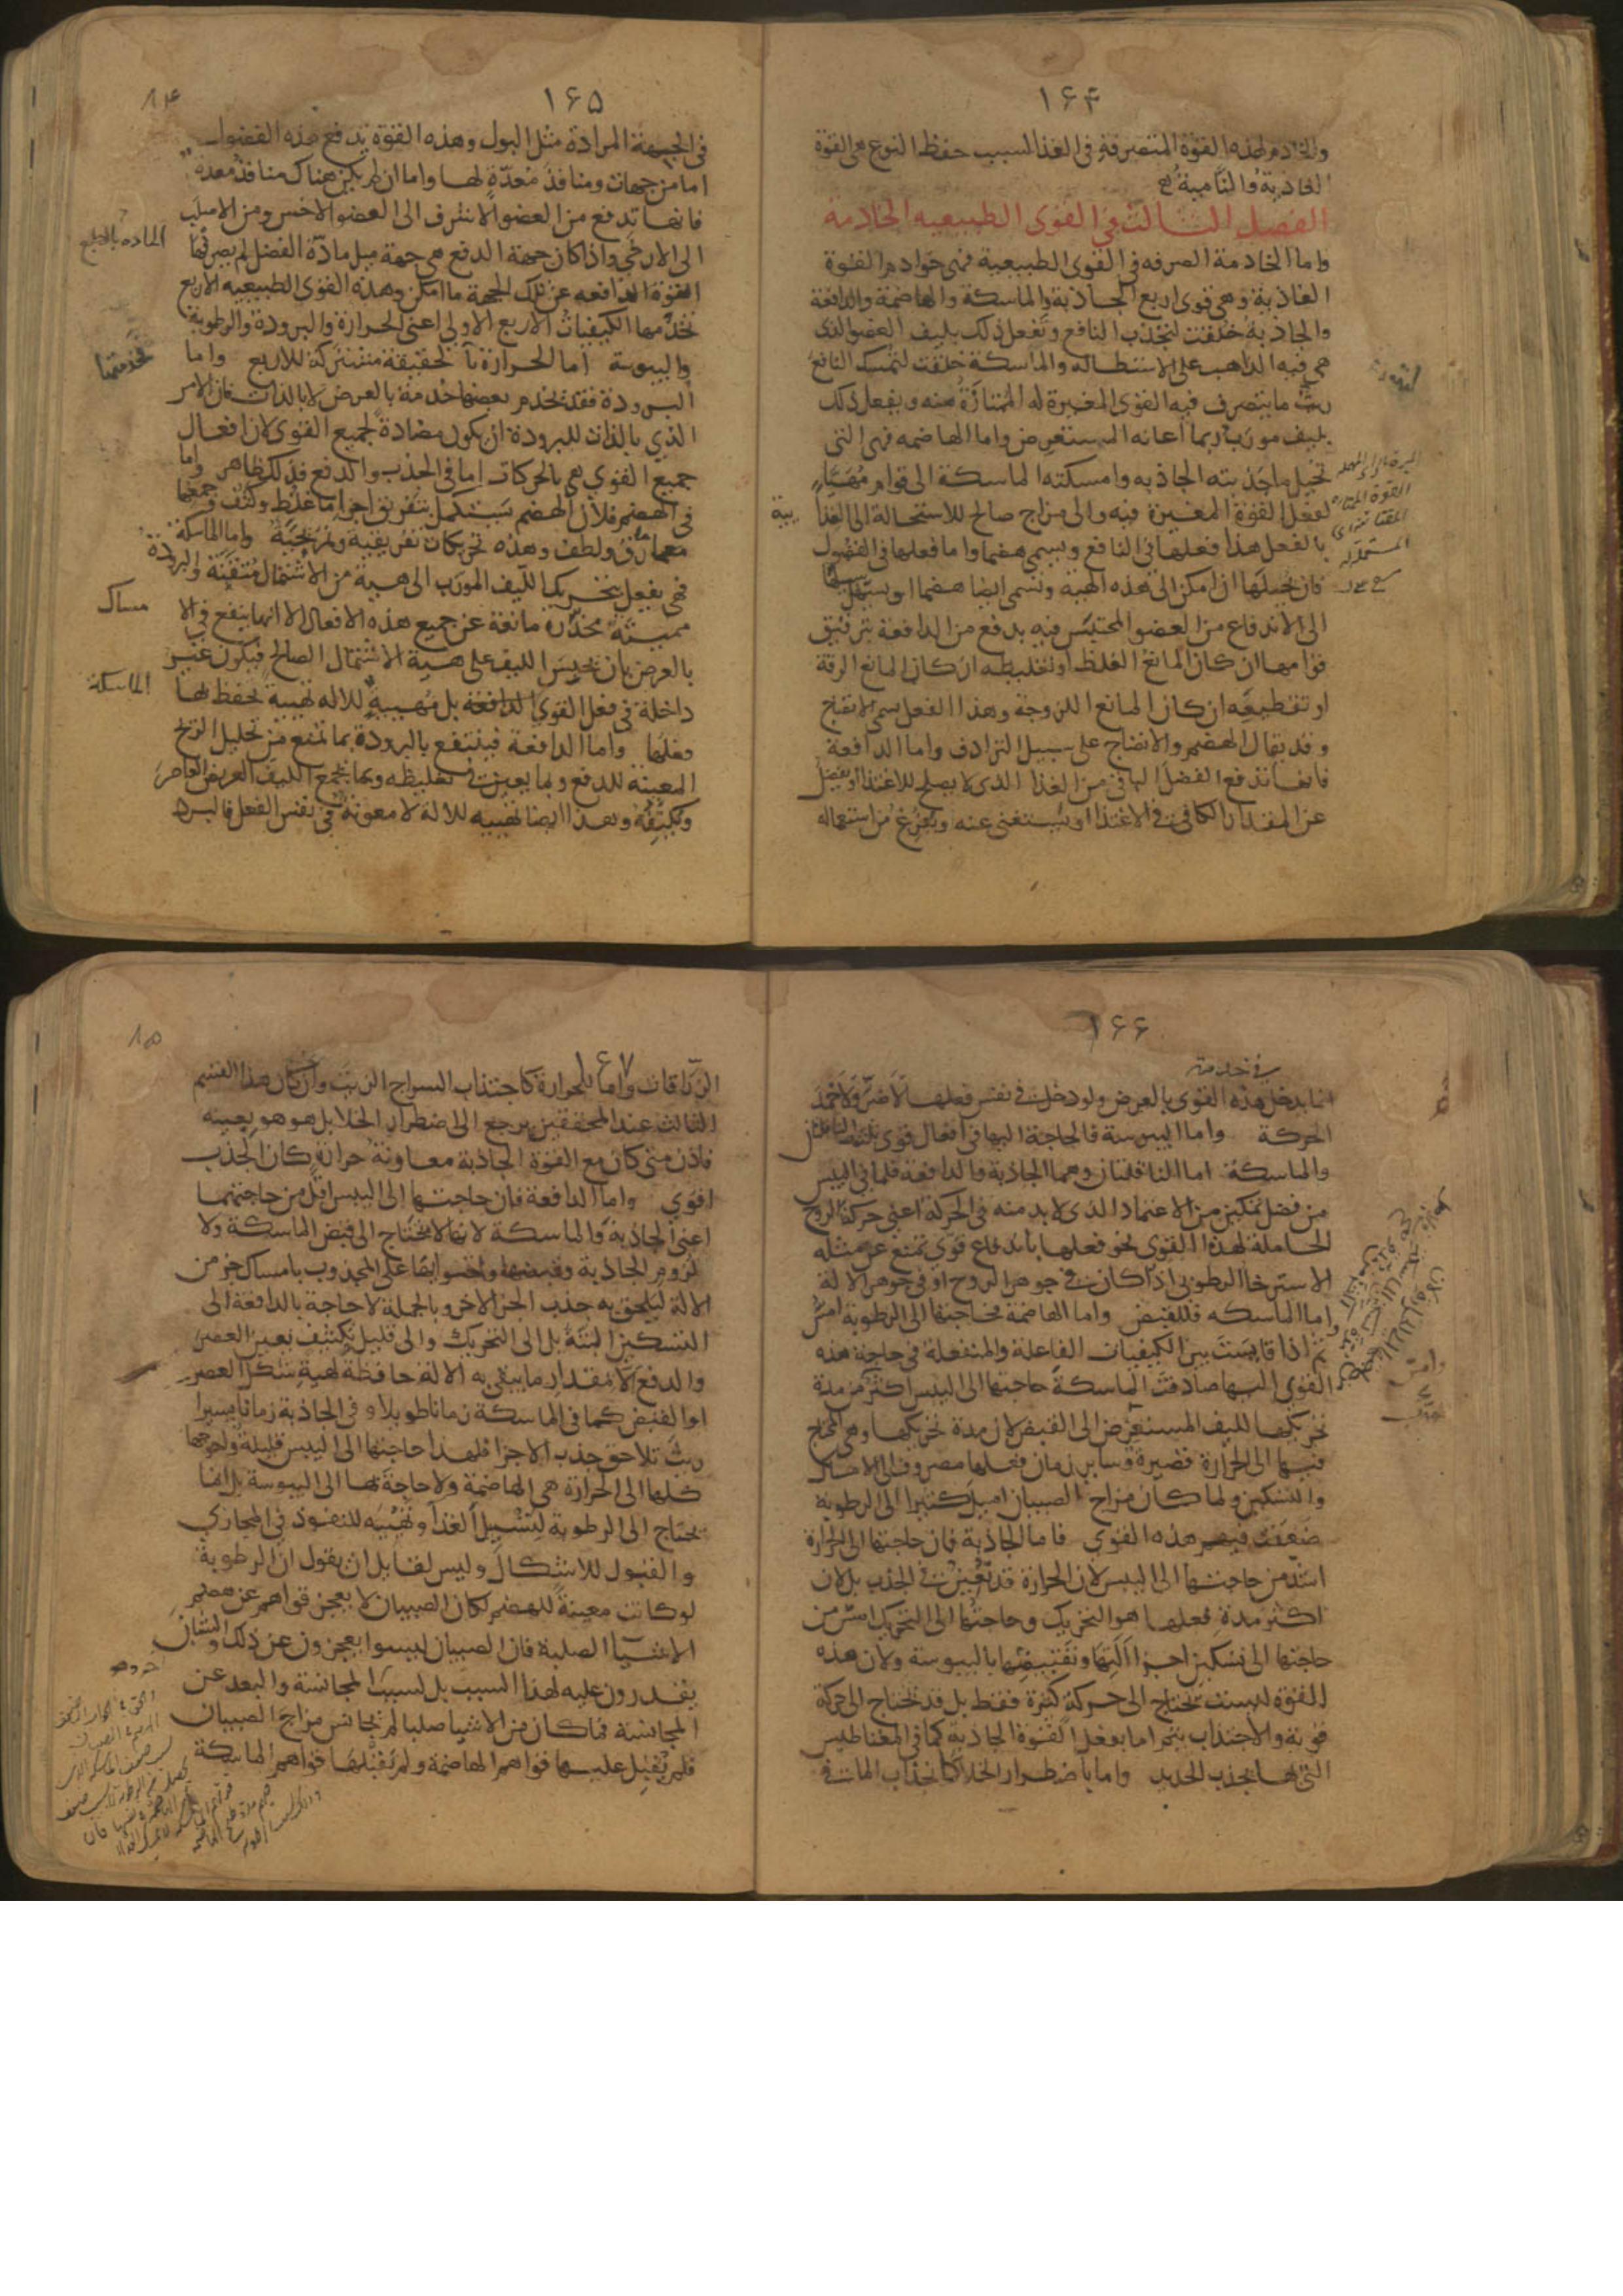 ١۶۴
والخادم لهذه القوة المتصرفة فى الغذا لسبب حفظ النوع هى القوة
الغاذية والنامية
الفصل الثالث في القوى الطبيعيه الخادمة
واما الخادمة الصرفه فى القوى الطبيعية فهى خوادم القوة
الغاذية وهى قوى اربع الجاذبة والماسكة والهاضمة والدافعة
والجاذبة خلقت لتجذب النافع وتفعل ذلك بليف العضو الذى
هى فيه الذاهب على الاستطالة والماسكة خلقت لتمسك النافع
ريث ما يتصرف فيه القوى المغيرة له الممتازة منه ويفعل ذلك
بليف مورب ربما اعانه المستعرض واما الهاضمه فهى التى
تحيل ما جذبته الجاذبه وامسكته الماسكة الى قوام مهيا
لفعل القوة المغيرة فيه والى مزاج صالح للاستحالة الى الغذا
بالفعل هذا فعلها فى النافع ويسمى هضما واما فعلها فى الفضول
فان تحيلها ان امكن الى هذه الهيه وتسمى ايضا هضما او يسهل سبيلها
الى الاندفاع من العضو المحتبس فيه بدفع من الدافعة بترقيق
قوامها ان كان المانع الغلظ او تغليظه ان كان المانع الرقة
او تقطيعه ان كان المانع اللزوجة وهذا الفعل سمى الانضاج
وقد يقال الهضم والانضاج على سبيل الترادف واما الدافعة
فانها تدفع الفضل الباقى من الغذا الذى لا يصلح للاغتذا او يفضل
عن المقدار الكافى فى الاغتذا او يستغنى عنه ويفرغ من استعماله
١۶۵
فى الجهة المرادة مثل البول وهذه القوة تدفع هذه الفضول
اما من جهات ومنافذ معدة لها واما ان لم يكن هناك منافذ معدة
فانها تدفع من العضو الاشرف الى العضو الاخس ومن الاصلب
الى الارخى واذا كان جهة الدفع هى جهة ميل مادة الفضل لم يصرفها
القوة الدافعه عن تلك الجهة ما امكن وهذه القوى الطبيعيه الاربع
تخدمها الكيفيات الاربع الاولى اعنى الحرارة والبرودة والرطوبة
واليبوسة اما الحرارة فالحقيقة مشتركة للاربع واما
البرودة فقد تخدم بعضها خدمة بالعرض لا بالذات فان الامر
الذي بالذات للبرودة ان يكون مضادة لجميع القوى لان افعال
جميع القوى هى بالحركات اما فى الجذب والدفع فذلك ظاهر واما
فى الهضم فلان الهضم يستكمل بتفريق اجزا ما غلظ وكثف وجمعها
مع ما رق ولطف وهذه تحريكات تفريقية وتمزيجية واما الماسكة
فهى تفعل بتحريك الليف المورب الى هيئة من الاشتمال متقنة والبرودة
مميتة مخدرة مانعة عن جميع هذه الافعال الا انها ينفع فى الا
بالعرض بان يحبس الليف على هيئة الاشتمال الصالح فيكون غير
داخلة فى فعل القوى الدافعة بل مهيئة للاله تهيئة تحفظ بها
فعلها واما الدافعة فينتفع بالبرودة بما تمنع من تحليل الريح
المعينة للدفع وبما يعين فى تغليظه وبما يجمع الليف العريض العاصر
وتكثفه وهذا ايضا تهيئه للالة لا معونة فى نفس الفعل فالبرد
الماسكة
١۶۶
انما يدخل هذه القوى بالعرض ولو دخل فى نفس فعلها لاضر ولاخمد
الحركة واما اليبوسة فالحاجة اليها فى افعال قوى ثلثه الناقلتان
والماسكة اما الناقلتان وهما الجاذبة والدافعة فلما فى اليبس
من فضل تمكين من الاعتماد الذى لا بد منه فى الحركة اعنى حركة الروح
الحاملة لهذه القوى نحو فعلها باندفاع قوى تمنع عن مثله
الاسترخا الرطوبى اذا كان فى جوهر الروح او فى جوهر الالة
واما الماسكه فللقبض واما الهاضمة فحاجتها الى الرطوبة امس
ثم اذا قايست بين الكيفيات الفاعلة والمنفعلة فى حاجة هذه
القوى اليها صادفت الماسكة حاجتها الى اليبس اكثر من مدة
تحريكها لليف المستعرض الى القبض لان مدة تحريكها وهى المحتاج
فيها الى الحرارة قصيرة وساير زمان فعلها مصروف الى الامساك
والتسكين ولما كان مزاج الصبيان اميل كثيرا الى الرطوبة
ضعفت فيهم هذه القوى فاما الجاذبة فان حاجتها الى الحرارة
اشد من حاجتها الى اليبس لان الحرارة قد تعين فى الجذب بل لان
اكثر مدة فعلها هو التحريك وحاجتها الى التحريك امس من
حاجتها الى تسكين اجزا آلتها وتقبيضها باليبوسة ولان هذه
القوة ليست تحتاج الى حركة كثيرة فقط بل قد تحتاج الى حركة
قوية والاجتذاب يتم اما بفعل القوة الجاذبة كما فى المغناطيس
التى بها يجذب الحديد واما باضطرار الخلا كانجذاب الما فى
١۶٧
الزراقات واما للحرارة كاجتذاب السراج الزيت وان كان هذا القسم
الثالث عند المحققين يرجع الى اضطرار الخلا بل هو هو بعينه
فاذن متى كان مع القوة الجاذبة معاونة حرارة كان الجذب
اقوى واما الدافعة فان حاجتها الى اليبس اقل من حاجتهما
اعنى الجاذبة والماسكة لانها لا تحتاج الى قبض الماسكة ولا
لزوم الجاذبة وقبضها واحتوايها على المجذوب بامساك جزء من
الالة ليلحق به جذب الجزء الاخر وبالجملة لا حاجة بالدافعة الى
التسكين البتة بل الى التحريك والى قليل تكثيف يعين العصر
والدفع لا مقدار ما يبقى به الالة حافظة لهيئة شكل العصر
او القبض كما فى الماسكة زمانا طويلا وفى الجاذبة زمانا يسيرا
ريث تلاحق جذب الاجزا فلهذا حاجتها الى اليبس قليلة واحوجها
كلها الى الحرارة هى الهاضمة ولا حاجة لها الى اليبوسة بل انما
يحتاج الى الرطوبة لتسييل الغذا وتهيئه للنفوذ فى المجارى
والقبول للاشكال وليس لقايل ان يقول ان الرطوبة
لو كانت معينة للهضم لكان الصبيان لا يعجز قواهم عن هضم
الاشيا الصلبة فان الصبيان ليسوا يعجزون عن ذلك والشبان
يقدرون عليه لهذا السبب بل لسبب المجانسة والبعد عن
المجانسة فما كان من الاشيا صلبا لم يجانس مزاج الصبيان
فلم يقبل عليها قواهم الهاضمة ولم يقبلها قواهم الماسكة